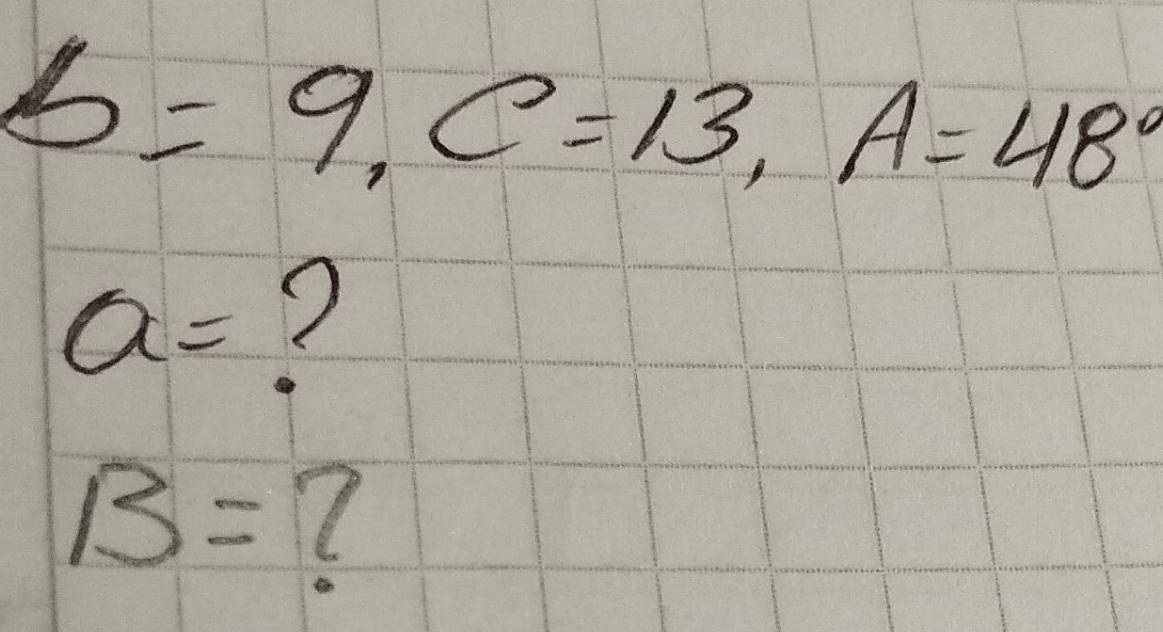 b = 9, C = 13, A = 48°
a = ?
B = ?